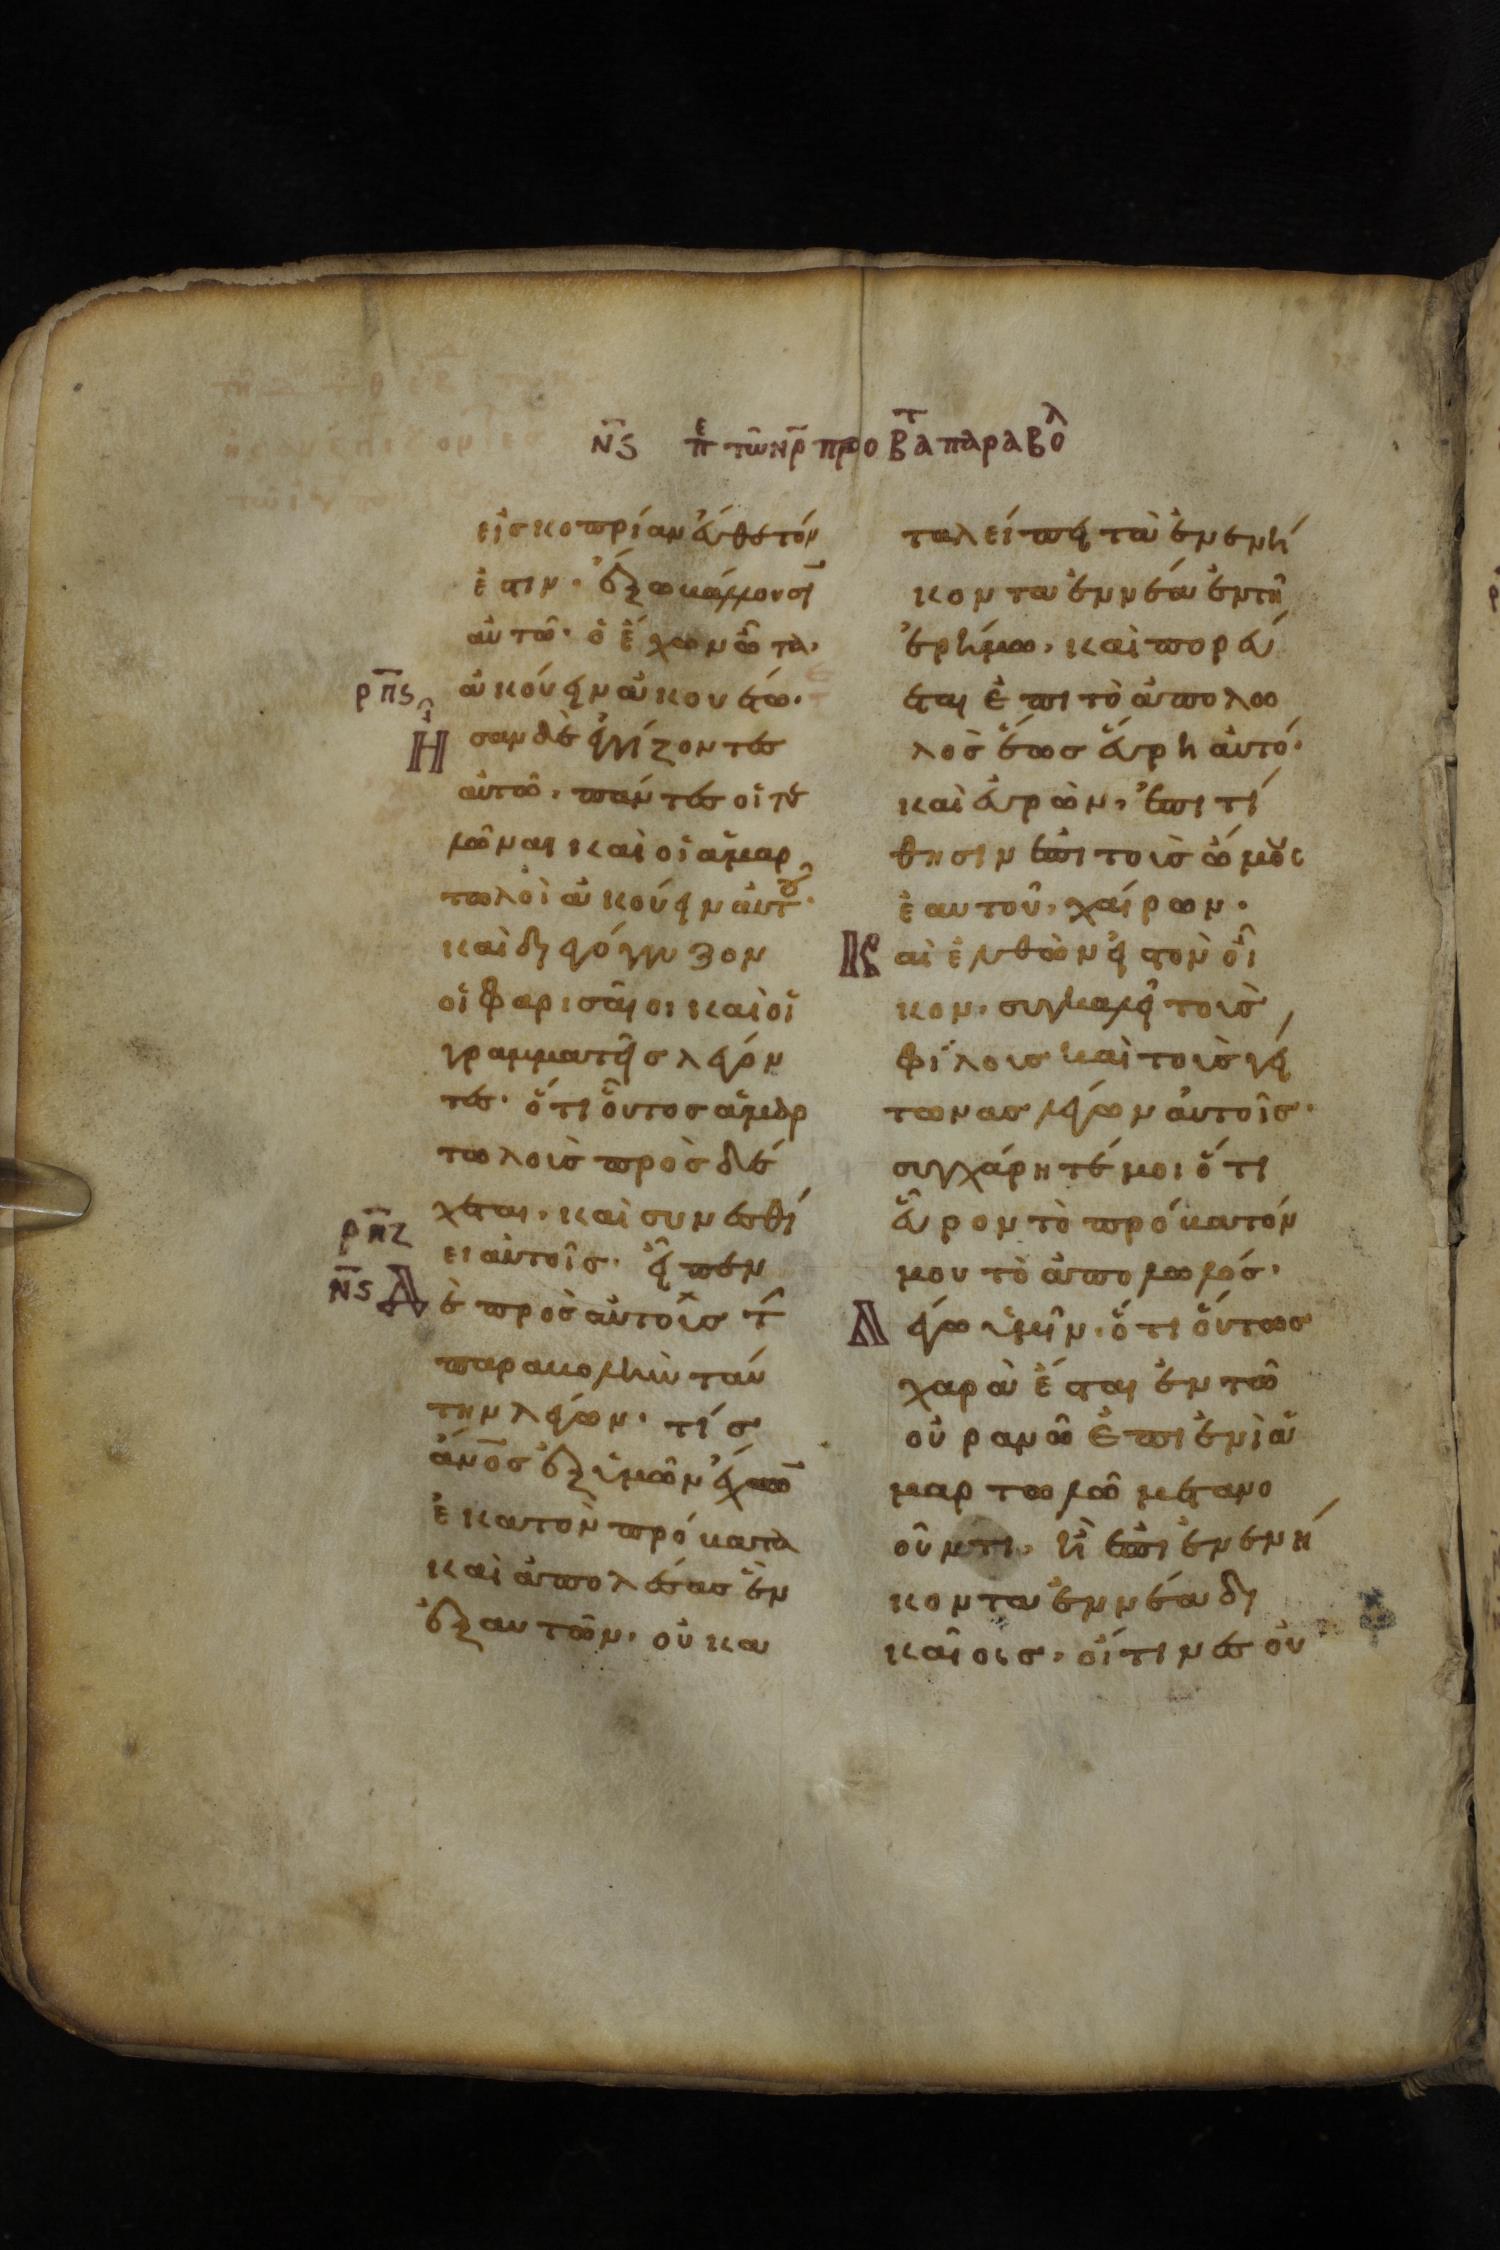 ν̅ς π̅ε τῶν ρ̅ προβατ παραβολ
εἰς κοπρίαν εὔθετόν
ἐστιν· ἔξω βάλλουσῑ
αὐτῶ· ὁ ἔχων ὦτα·
ρ̅π̅ς
ἀκούειν ἀκουέτω·
Ησαν δὲ ἐγγίζοντες
αὐτῶ· πάντες οἱ τε
λῶναι καὶ οἱ ἁμαρ
τωλοὶ ἀκούειν αὐτοῦ·
καὶ διεγόγγυζον
οἱ φαρισαῖοι καὶ οἱ
γραμματεῖς λέγον
τες· ὅτι οὗτος ἁμαρ
τωλοὺς προσδέ
χεται· καὶ συνεσθί
ρ̅π̅ζ
ει αὐτοῖς· εἶπεν
ν̅ς
Δὲ πρὸς αὐτοῖς τ
παραβολὴν ταύ
την λέγων· τίς
ἄν̅ος ἐξ ὑμῶν ἔχω̅
ἑκατὸν πρόβατα
καὶ ἀπολέσας ἓν
ἐξ αὐτῶν· οὐ κα
ταλείπει τὰ ἐνενή
κοντα ἐννέα ἐν τῆ
ἐρήμω· καὶ πορεύ
εται ἐπὶ τὸ ἀπολω
λὸς ἕως εὕρη αὐτό·
καὶ εὑρὼν· ἐπιτί
θησιν ἐπὶ τοὺς ὤμους
ἑαυτοῦ· χαίρων·
Καὶ ἐλθὼν εἰς τὸν οἶ
κον· συγκαλεῖ τοὺς
φίλους καὶ τοὺς γεί
τωνας λέγων αὐτοῖς·
συγχάρητέ μοι ὅτι
εὗρον τὸ πρόβατόν
μου τὸ ἀπολωλός·
Λέγω ὑμῖν· ὅτι οὕτως
χαρὰ ἔσται ἐν τῶ
οὐρανῶ ἐπὶ ἑνὶ ἁ
μαρτωλῶ μετανο
οῦντι· ἢ ἐπὶ ἐνενή
κοντα ἐννέα δι
καίοις· οἵτινες οὐ